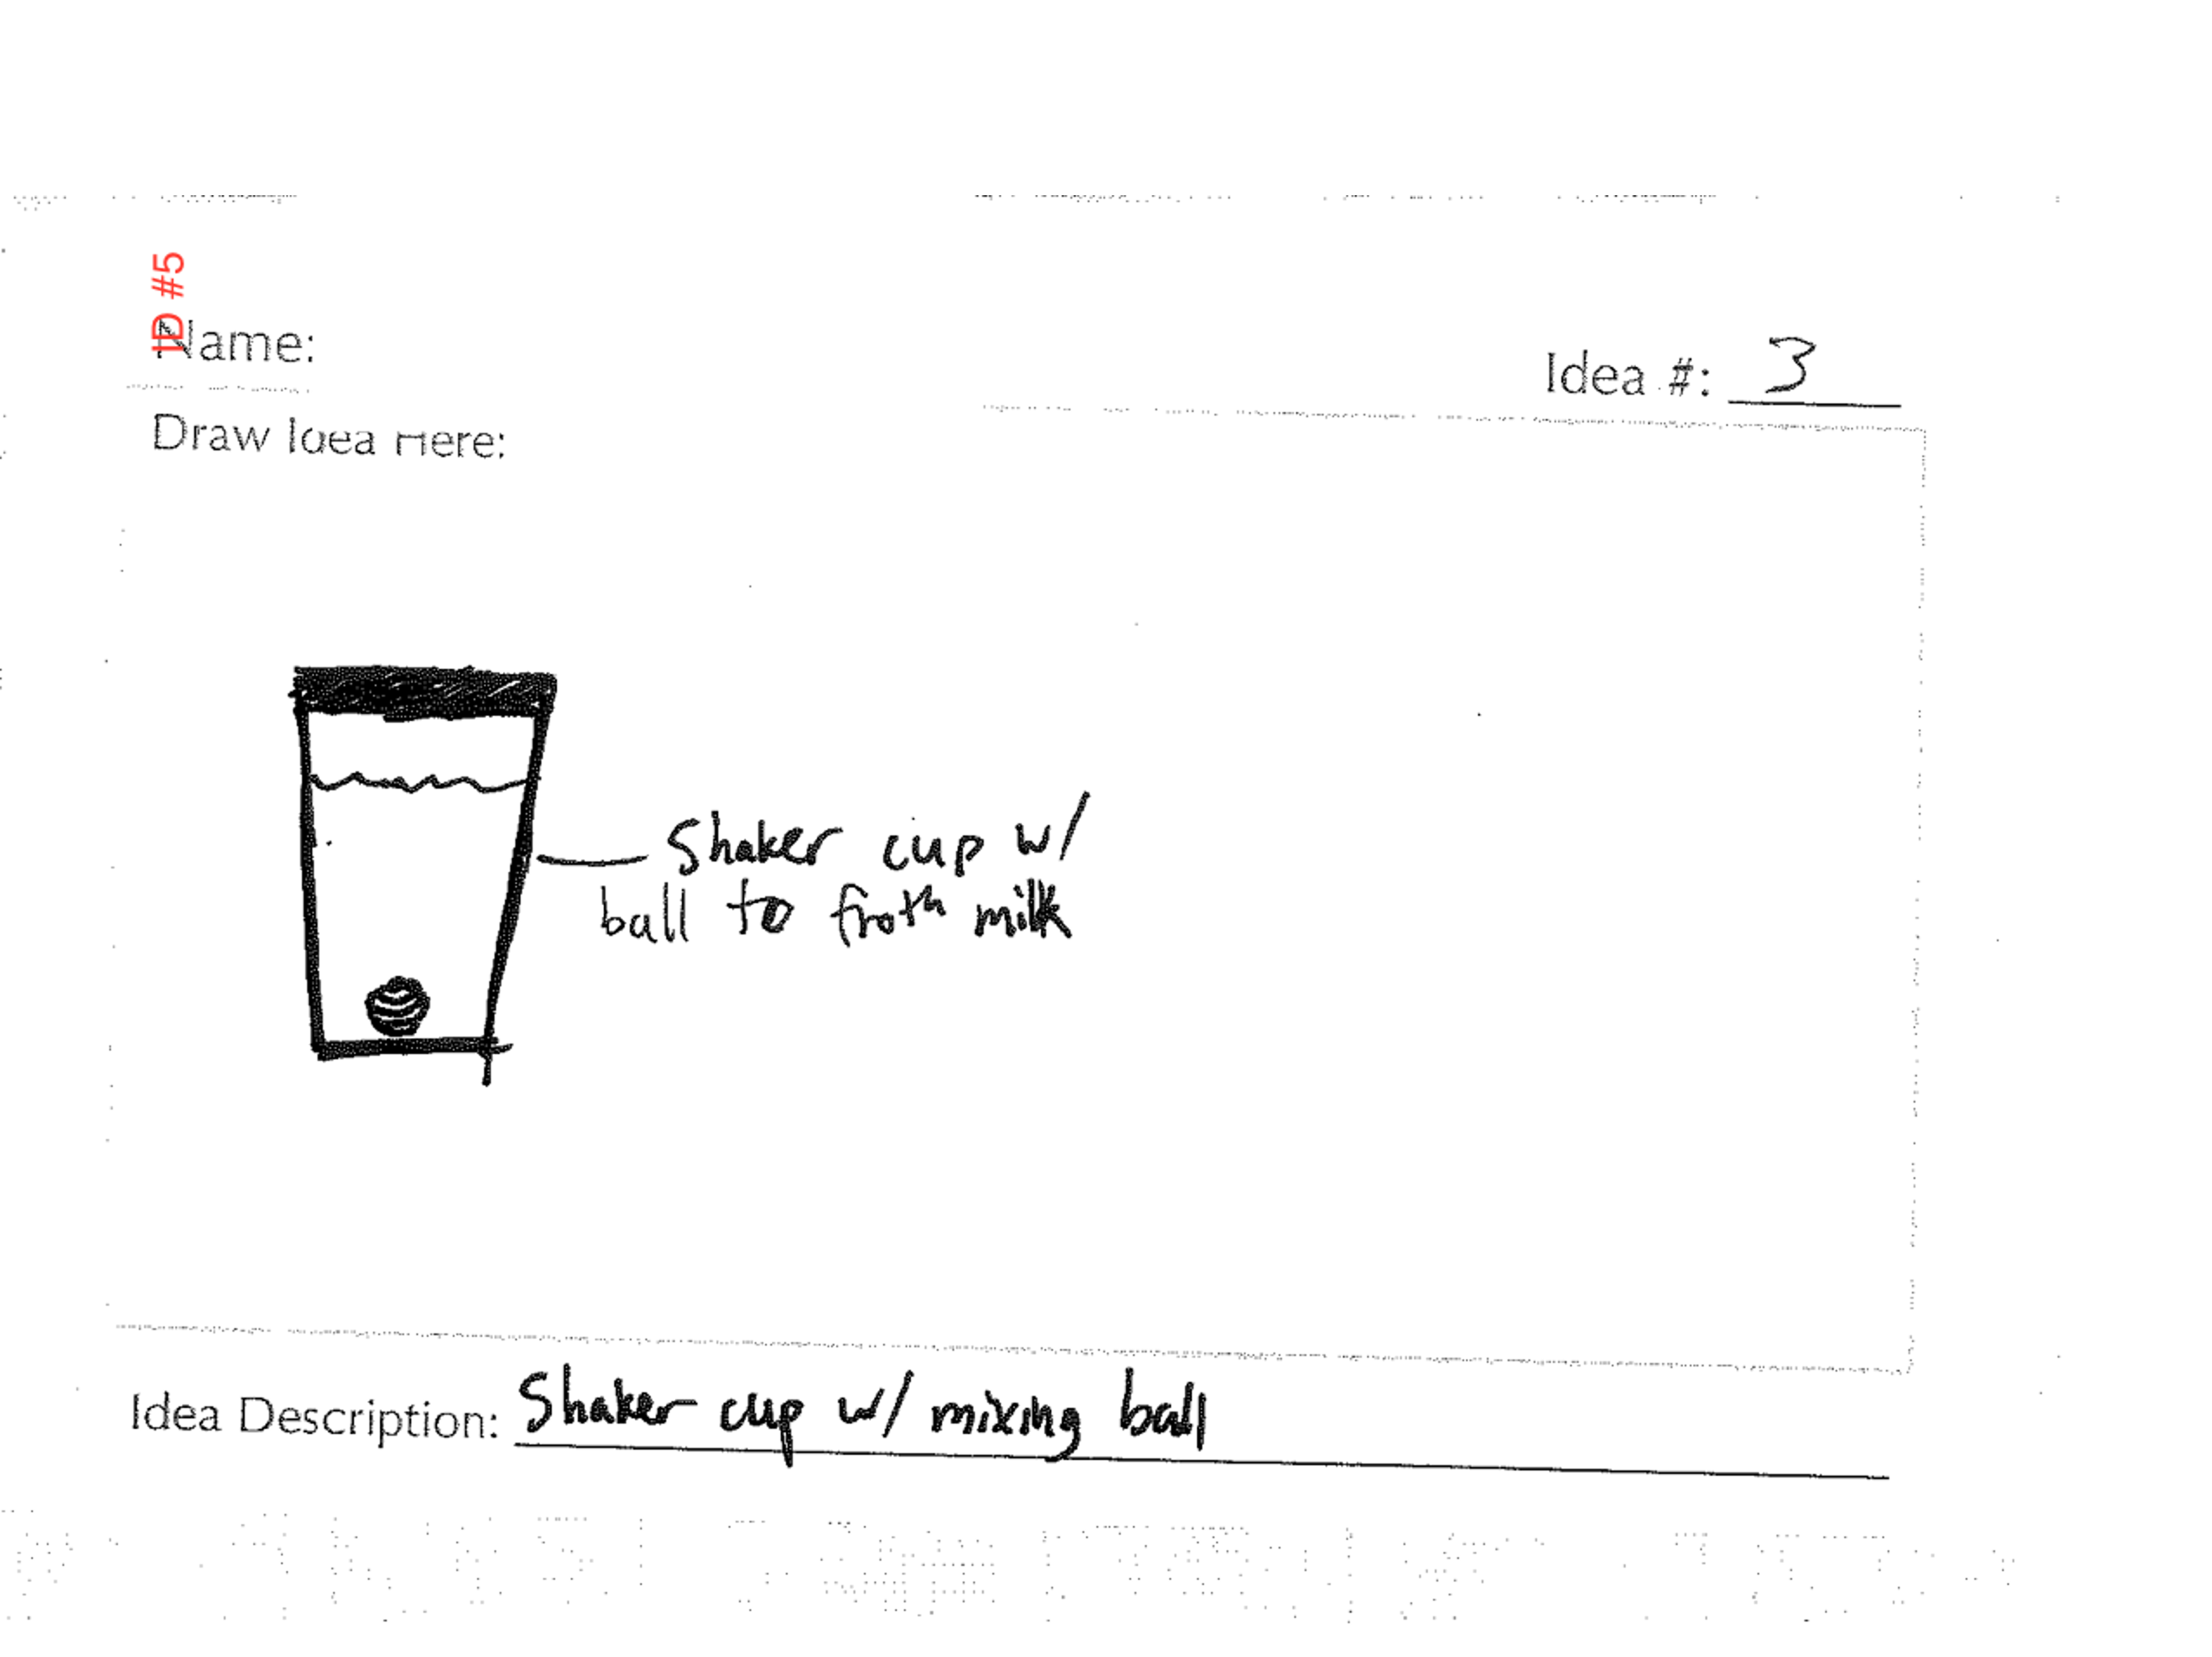 ID #5
Name:
Idea #: 3
Draw Idea Here:
Shaker cup w/
ball to froth milk
Idea Description: Shaker cup w/ mixing ball